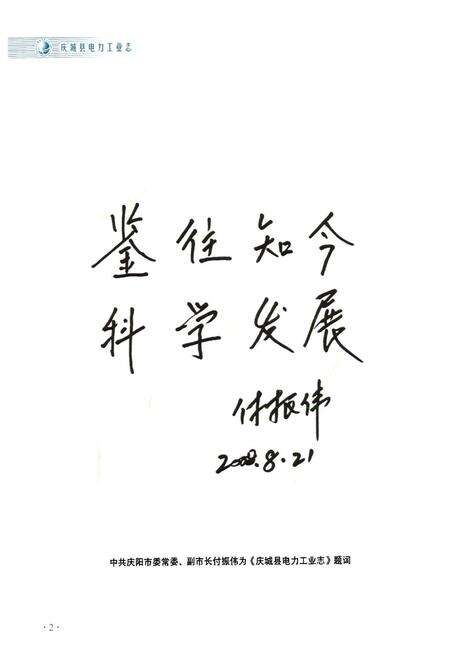 庆城县电力工业志
鉴往知今
科学发展
付振伟
2008.8.21
中共庆阳市委常委、副市长付振伟为《庆城县电力工业志》题词
·2·